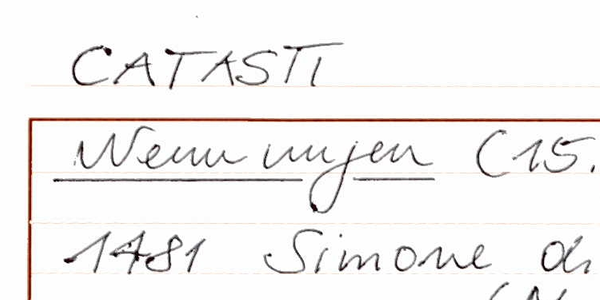 CATASTI
Nennungen (15.
1481 Simone di